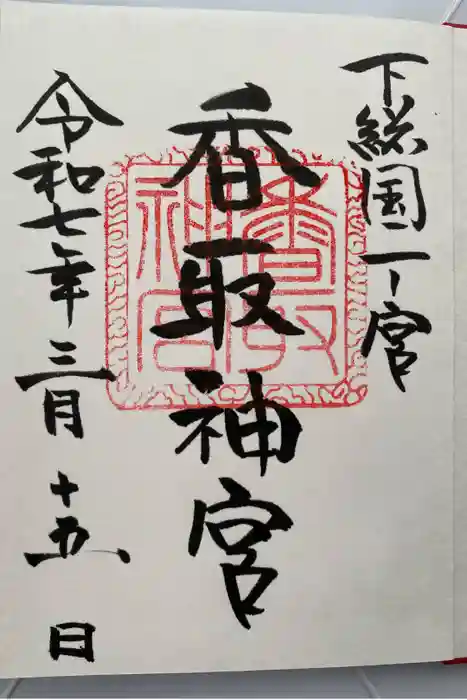 下総国一ノ宮
香取神宮
香取神宮
令和七年三月十五日